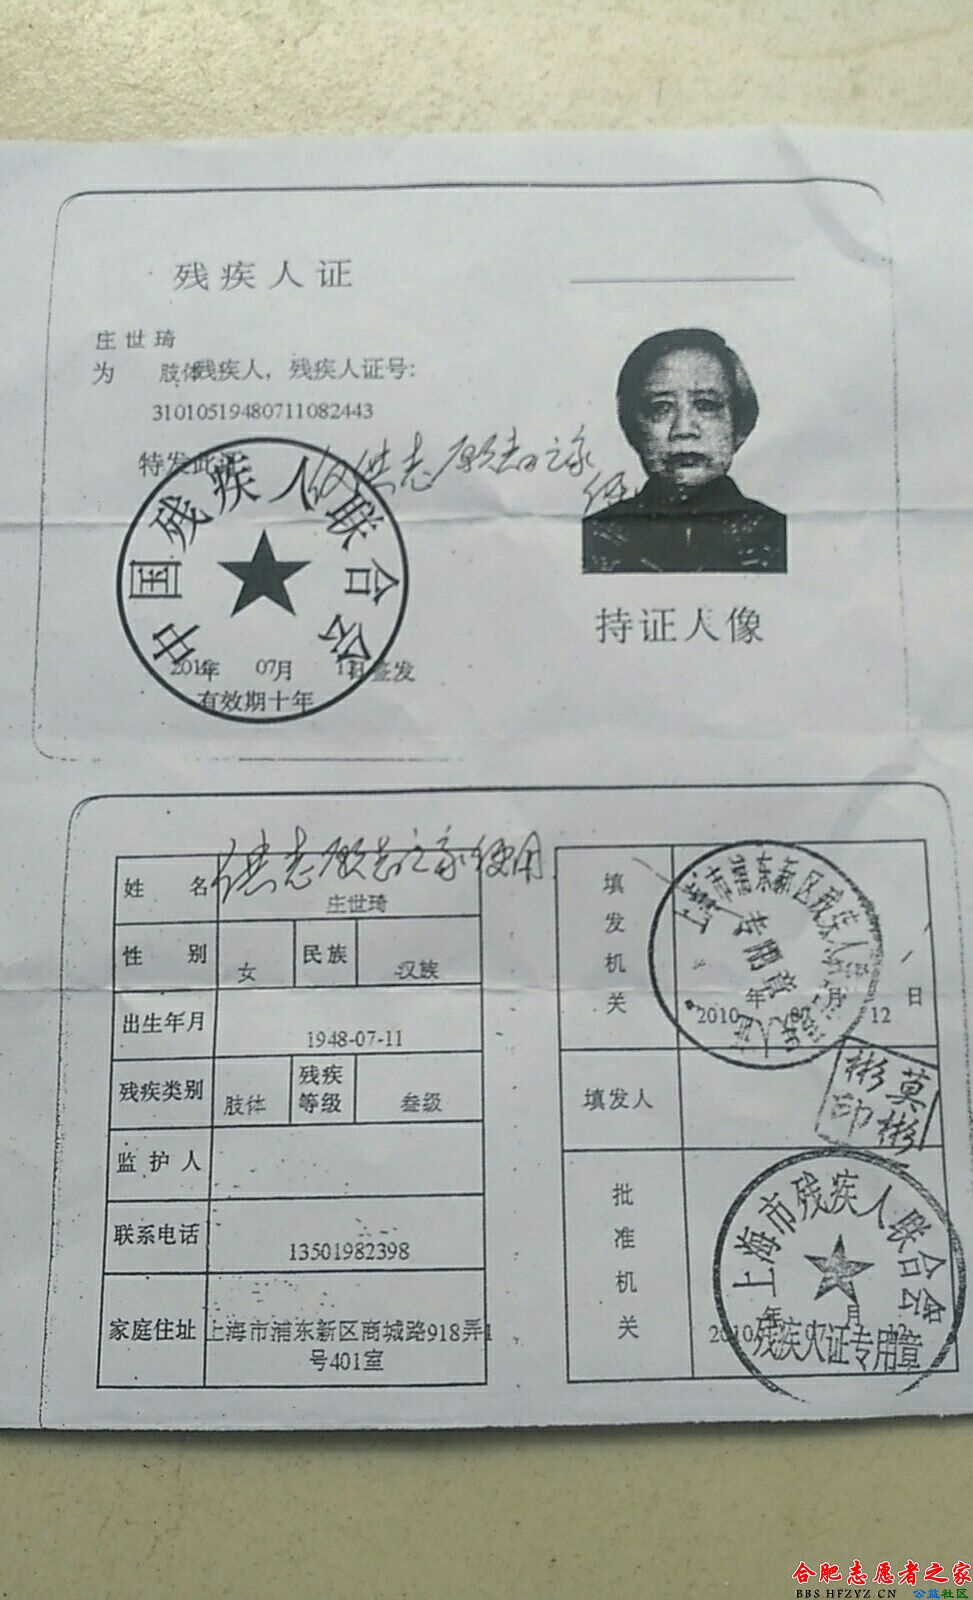 残疾人证
庄世琦
为 肢体残疾人，残疾人证号：
31010519480711082443
特发此证
仅供志愿者之家
使
中国残疾人联合会
2010年 07月 12日签发
有效期十年
持证人像
供志愿者之家使用
姓名 庄世琦
性别 女 民族 汉族
出生年月 1948-07-11
残疾类别 肢体 残疾等级 叁级
监护人
联系电话 13501982398
家庭住址 上海市浦东新区商城路918弄1
号401室
填发机关
上海市浦东新区残疾人
专用章
2010年 07月 12日
填发人
莫彬彬印
批准机关
上海市残疾人联合会
2010年 07月 12
残疾人证专用章
合肥志愿者之家
BBS.HFZYZ.CN 公益社区